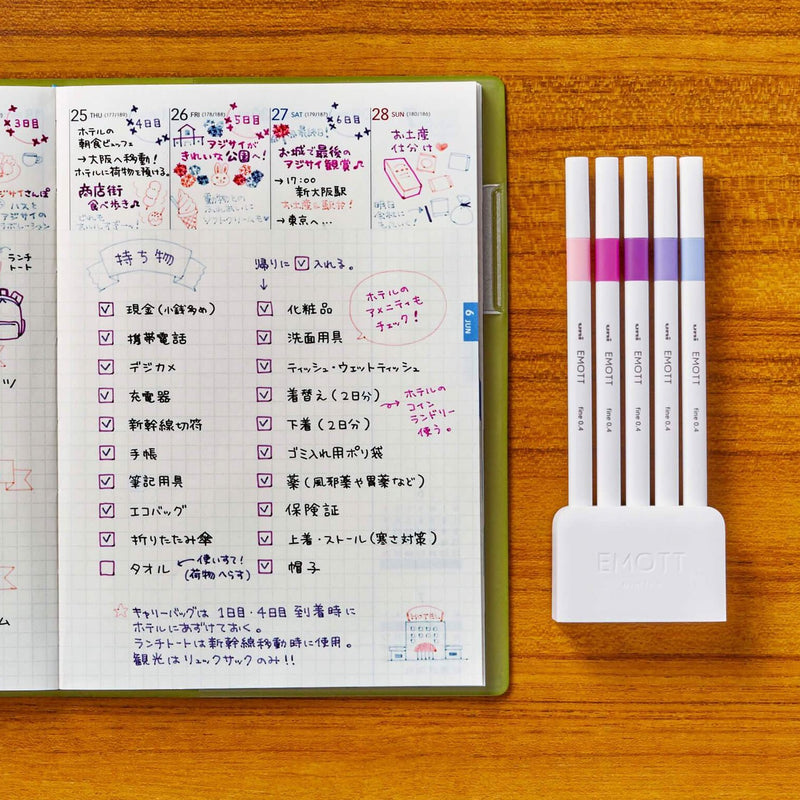 3日目
アジサイさんぽ
バスを
ランチ
トート
25 THU (177/189)
4日目
ホテルの
朝食ビュッフェ
→大阪へ移動!
ホテルに荷物を預ける。
商店街
食べ歩き♪
26 FRI (178/188)
5日目
アジサイが
きれいな公園へ!
動物との
ふれあい
ソフトクリームも
27 SAT (179/187)
6日目
最終日!
お城で最後の
アジサイ観賞♪
→17:00
新大阪駅
お土産&駅弁!
→東京へ…
28 SUN (180/186)
お土産
仕分け
持ち物
帰りに☑入れる。
↓
☑ 現金(小銭多め)
☑ 携帯電話
☑ デジカメ
☑ 充電器
☑ 新幹線切符
☑ 手帳
☑ 筆記用具
☑ エコバッグ
☑ 折りたたみ傘
☐ タオル
使いすて!
(荷物へらす)
☑ 化粧品
☑ 洗面用具
☑ ティッシュ・ウェットティッシュ
☑ 着替え(2日分)
☑ 下着(2日分)
☑ ゴミ入れ用ポリ袋
☑ 薬(風邪薬や胃薬など)
☑ 保険証
☑ 上着・ストール(寒さ対策)
☑ 帽子
ホテルの
アメニティも
チェック!
ホテルの
コイン
ランドリー
使う。
☆キャリーバッグは 1日目・4日目 到着時に
ホテルにあずけておく。
ランチトートは新幹線移動時に使用。
観光はリュックサックのみ!!
6 JUN
uni EMOTT fine 0.4
uni EMOTT fine 0.4
uni EMOTT fine 0.4
uni EMOTT fine 0.4
uni EMOTT fine 0.4
EMOTT